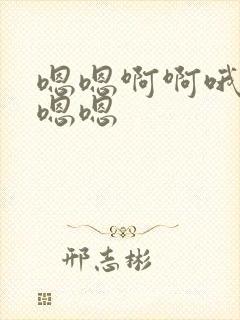 嗯嗯啊啊哦
嗯嗯
邢志彬